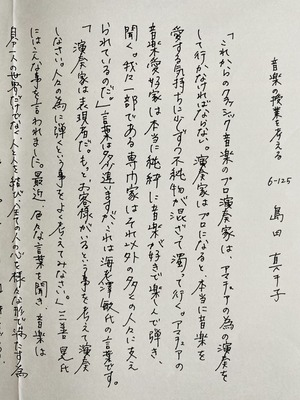 音楽の授業を考える
6-125 島田 真千子
「これからのクラシック音楽のプロ演奏家は、アマチュアの為の演奏を
して行かなければならない。演奏家はプロになると、本当に音楽を
愛する気持ちに少しずつ不純物が混ざって濁って行く。アマチュアの
音楽愛好家は本当に純粋に音楽が好きで楽しんで弾き、
聞く。我々一部である専門家はそれ以外の多くの人々に支え
られているのだ」言葉は多少違いますが、これは海老澤敏氏の言葉です。
「演奏家は表現者だ。もっと、お客様がいるという事を考えて演奏
しなさい。人々の為に弾くという事をよく考えてみなさい。」三善晃氏
はこんな事を言われました。最近、色々な言葉を聞き、音楽は
個人の世界だけでなく、人と人を結び、全ての人の心を様々な形で満たす為